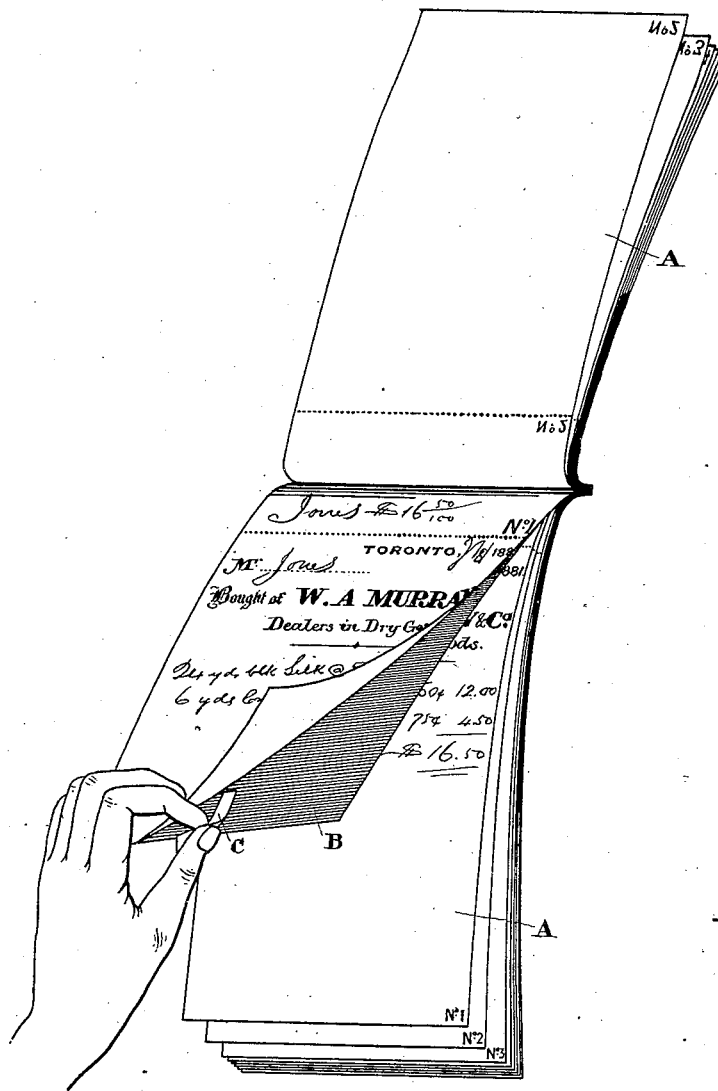 No 2
No 3
A
No 2
Jones $16 50/100
No 1
TORONTO, 188
1881
Mr. Jones
Bought of W. A MURRAY & Co
Dealers in Dry Goods.
2 1/4 yds blk Silk @ 50¢ 12.00
6 yds 75¢ 4.50
$16.50
C
B
A
No 1
No 2
No 3